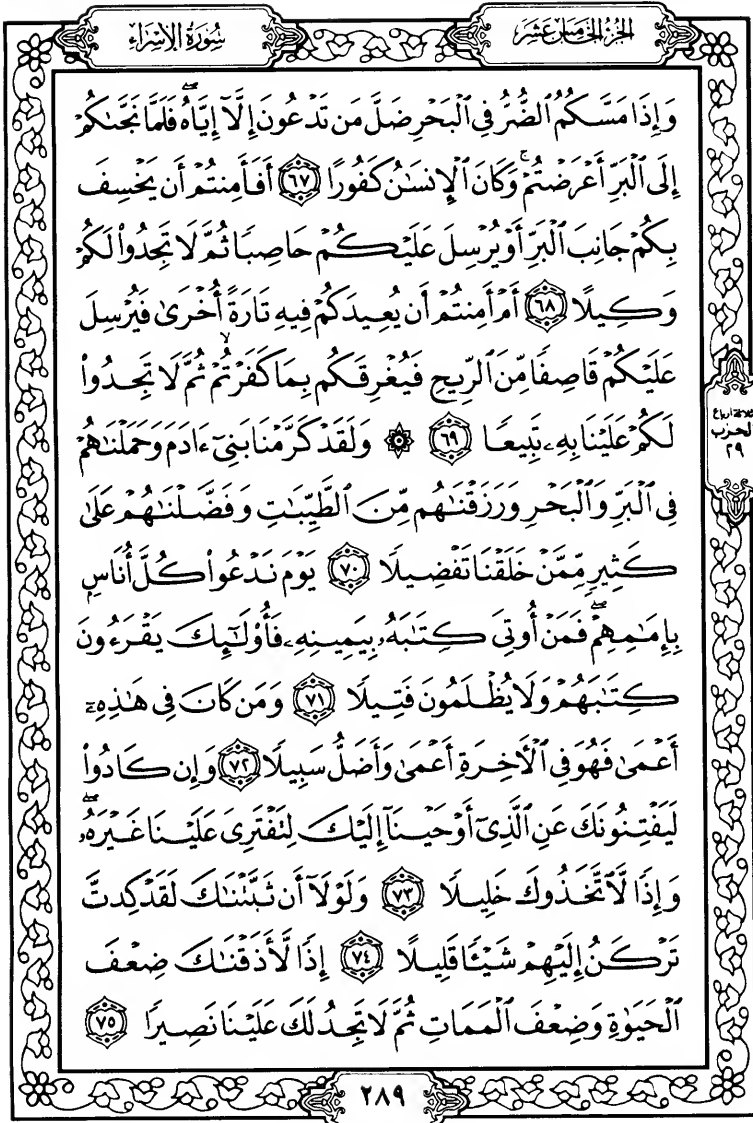 الجزء الخامس عشر
سورة الإسراء
وَإِذَا مَسَّكُمُ ٱلضُّرُّ فِي ٱلْبَحْرِ ضَلَّ مَن تَدْعُونَ إِلَّآ إِيَّاهُۖ فَلَمَّا نَجَّىٰكُمْ
إِلَى ٱلْبَرِّ أَعْرَضْتُمْۚ وَكَانَ ٱلْإِنسَٰنُ كَفُورًا ٦٧ أَفَأَمِنتُمْ أَن يَخْسِفَ
بِكُمْ جَانِبَ ٱلْبَرِّ أَوْ يُرْسِلَ عَلَيْكُمْ حَاصِبًا ثُمَّ لَا تَجِدُوا۟ لَكُمْ
وَكِيلًا ٦٨ أَمْ أَمِنتُمْ أَن يُعِيدَكُمْ فِيهِ تَارَةً أُخْرَىٰ فَيُرْسِلَ
عَلَيْكُمْ قَاصِفًا مِّنَ ٱلرِّيحِ فَيُغْرِقَكُم بِمَا كَفَرْتُمْۙ ثُمَّ لَا تَجِدُوا۟
لَكُمْ عَلَيْنَا بِهِۦ تَبِيعًا ٦٩ ۞ وَلَقَدْ كَرَّمْنَا بَنِيٓ ءَادَمَ وَحَمَلْنَٰهُمْ
فِي ٱلْبَرِّ وَٱلْبَحْرِ وَرَزَقْنَٰهُم مِّنَ ٱلطَّيِّبَٰتِ وَفَضَّلْنَٰهُمْ عَلَىٰ
كَثِيرٍ مِّمَّنْ خَلَقْنَا تَفْضِيلًا ٧٠ يَوْمَ نَدْعُوا۟ كُلَّ أُنَاسٍۭ
بِإِمَٰمِهِمْۖ فَمَنْ أُوتِيَ كِتَٰبَهُۥ بِيَمِينِهِۦ فَأُو۟لَٰٓئِكَ يَقْرَءُونَ
كِتَٰبَهُمْ وَلَا يُظْلَمُونَ فَتِيلًا ٧١ وَمَن كَانَ فِي هَٰذِهِۦٓ
أَعْمَىٰ فَهُوَ فِي ٱلْأَخِرَةِ أَعْمَىٰ وَأَضَلُّ سَبِيلًا ٧٢ وَإِن كَادُوا۟
لَيَفْتِنُونَكَ عَنِ ٱلَّذِيٓ أَوْحَيْنَآ إِلَيْكَ لِتَفْتَرِيَ عَلَيْنَا غَيْرَهُۥۖ
وَإِذًا لَّٱتَّخَذُوكَ خَلِيلًا ٧٣ وَلَوْلَآ أَن ثَبَّتْنَٰكَ لَقَدْ كِدتَّ
تَرْكَنُ إِلَيْهِمْ شَيْـًٔا قَلِيلًا ٧٤ إِذًا لَّأَذَقْنَٰكَ ضِعْفَ
ٱلْحَيَوٰةِ وَضِعْفَ ٱلْمَمَاتِ ثُمَّ لَا تَجِدُ لَكَ عَلَيْنَا نَصِيرًا ٧٥
ثلاثة أرباع
الحزب
٢٩
٢٨٩